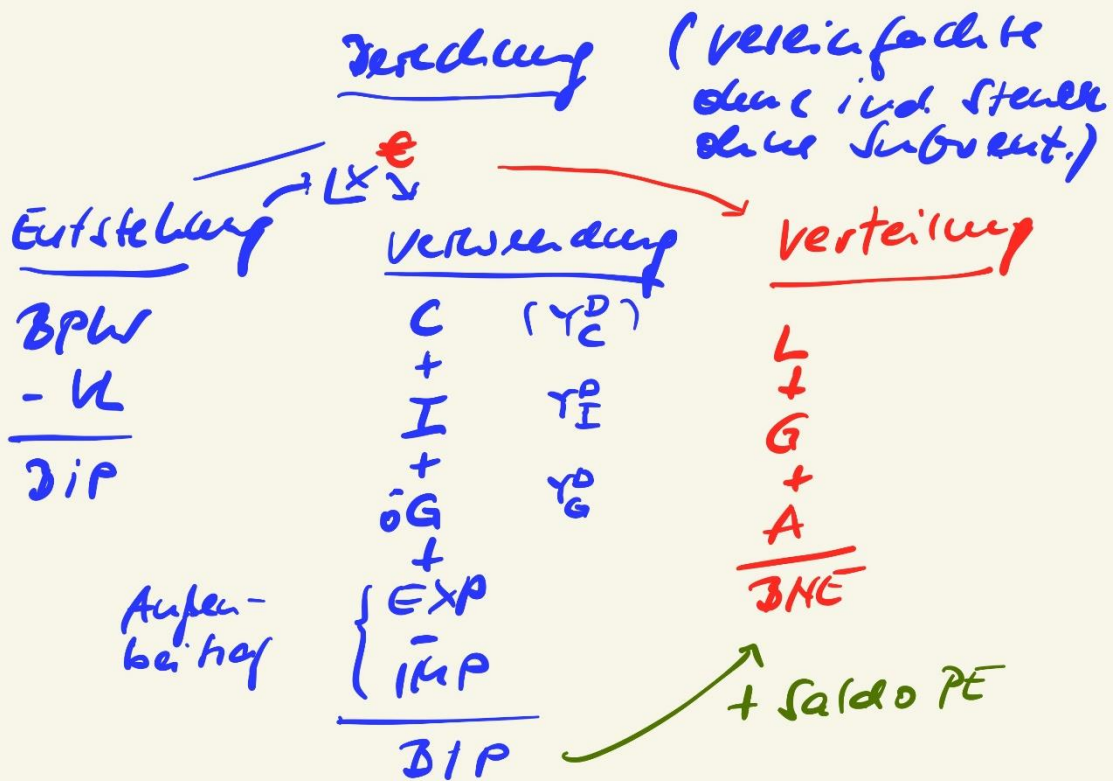 Berechnung
(vereinfachte
ohne ind. Steuern
ohne Subvent.)
€
Entstehung
BPW
- VL
BIP
Verwendung
C (Y^D_C)
+
I Y^D_I
+
öG Y^D_G
+
Außen-
beitrag
EXP
-
IMP
BIP
Verteilung
L
+
G
+
A
BNE
+ Saldo PE